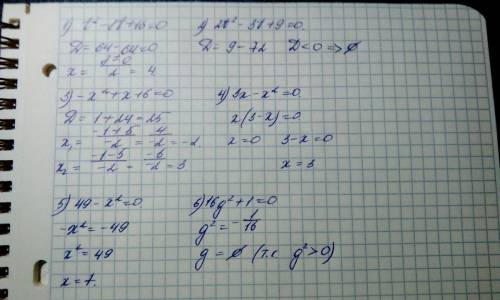 1) x² - 8x + 16 = 0
D = 64 - 64 = 0
x = 8±0/2 = 4
2) 2x² - 3x + 9 = 0
D = 9 - 72 D < 0 => ∅
3) -x² + x + 6 = 0
D = 1 + 24 = 25
x₁ = -1+5/-2 = 4/-2 = -2
x₂ = -1-5/-2 = -6/-2 = 3
4) 3x - x² = 0
x(3-x) = 0
x = 0 3-x = 0
x = 3
5) 49 - x² = 0
-x² = -49
x² = 49
x = 7.
6) 16y² + 1 = 0
y² = -1/16
y = ∅ (т.к. y² > 0)